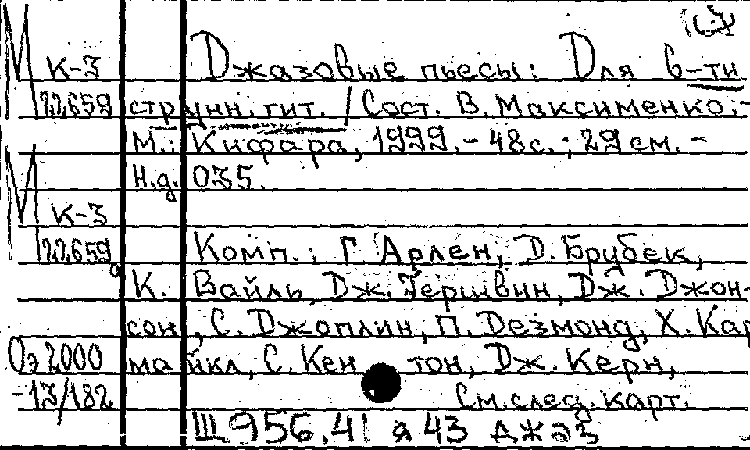 М К-3 Джазовые пьесы: Для 6-ти
22659 струнн. гит. / Сост. В. Максименко. -
М.: Кифара, 1999. - 48с.; 29см. -
М Н.д. 035.
К-3
22659а Комп.: Г. Арлен, Д. Брубек,
К. Вайль, Дж. Гершвин, Дж. Джон-
сон, С. Джоплин, П. Дезмонд, Х. Кар
Оэ2000 майкл, С. Кентон, Дж. Керн,
-13/182 См. след. карт.
Щ956.41 я43 джаз